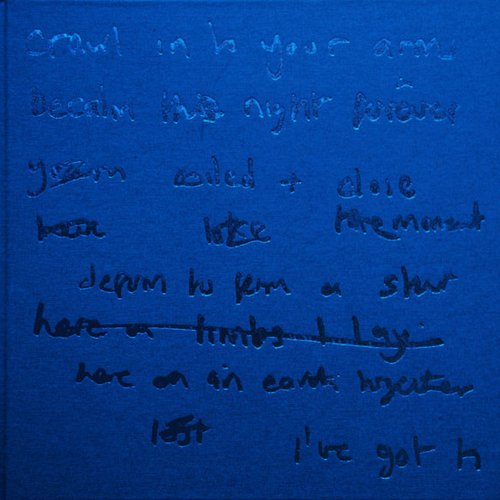 crawl in to your arm
Become this night forever
coiled + close
take moment
deform to form a star
here on limbs I lay
here on an earth together
lost
I've got to